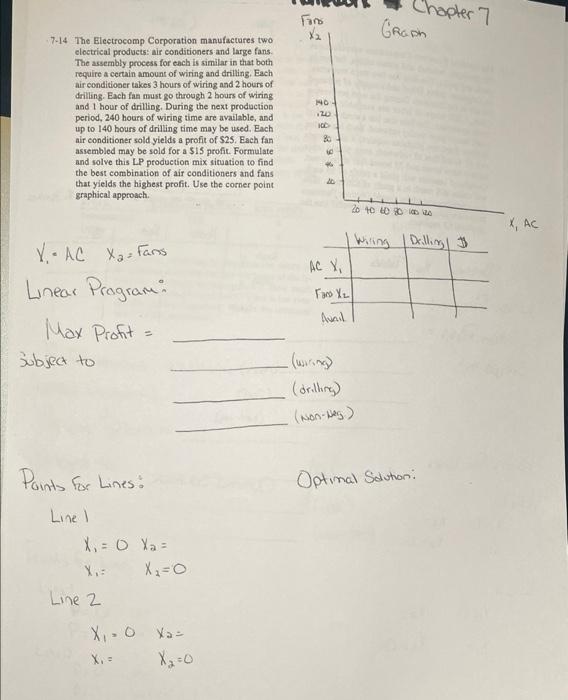 Chapter 7
7-14 The Electrocomp Corporation manufactures two
electrical products: air conditioners and large fans.
The assembly process for each is similar in that both
require a certain amount of wiring and drilling. Each
air conditioner takes 3 hours of wiring and 2 hours of
drilling. Each fan must go through 2 hours of wiring
and 1 hour of drilling. During the next production
period, 240 hours of wiring time are available, and
up to 140 hours of drilling time may be used. Each
air conditioner sold yields a profit of $25. Each fan
assembled may be sold for a $15 profit. Formulate
and solve this LP production mix situation to find
the best combination of air conditioners and fans
that yields the highest profit. Use the corner point
graphical approach.
Fans
X2
Graph
140
120
100
80
60
40
20
20 40 60 80 100 120
X1 AC
X1 = AC X2 = Fans
Wiring Drilling $
AC X1
Fans X2
Avail.
Linear Program:
Max Profit =
Subject to
(wiring)
(drilling)
(Non-Neg.)
Points For Lines:
Optimal Solution:
Line 1
X1 = 0 X2 =
X1 = X2 = 0
Line 2
X1 = 0 X2 =
X1 = X2 = 0